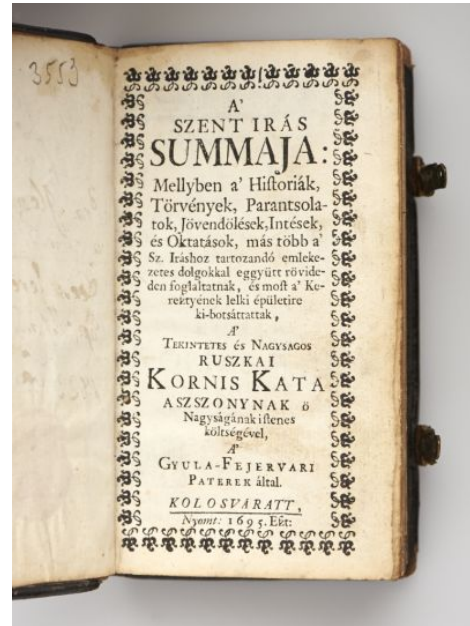 3553
A'
SZENT IRÁS
SUMMAJA:
Mellyben a' Hiſtoriák,
Törvények, Parantsola-
tok, Jövendölések, Intések,
és Oktatások, más több a'
Sz. Iráshoz tartozandó emleke-
zetes dolgokkal eggyütt rövide-
den foglaltatnak, és moſt a' Ke-
reſztyének lelki épületire
ki-botsáttattak,
A'
TEKINTETES és NAGYSAGOS
RUSZKAI
KORNIS KATA
ASZSZONYNAK ö
Nagyságának iſtenes
költségével,
A'
GYULA-FEJERVARI
PATEREK által.
KOLOSVARATT,
Nyomt: 1695. Eſzt: